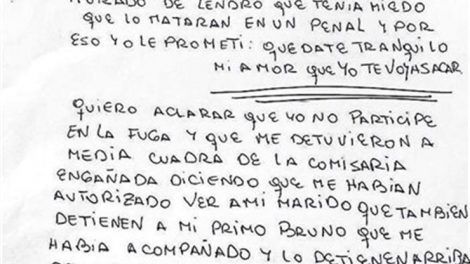 DE LENDRO QUE TENIA MIEDO
QUE LO MATARAN EN UN PENAL Y POR
ESO YO LE PROMETI: QUEDATE TRANQUILO
MI AMOR QUE YO TE VOY A SACAR
QUIERO ACLARAR QUE YO NO PARTICIPE
EN LA FUGA Y QUE ME DETUVIERON A
MEDIA CUADRA DE LA COMISARIA
ENGAÑADA DICIENDO QUE ME HABIAN
AUTORIZADO VER A MI MARIDO QUE TAMBIEN
DETIENEN A MI PRIMO BRUNO QUE ME
HABIA ACOMPAÑADO Y LO DETIENEN ARRIBA